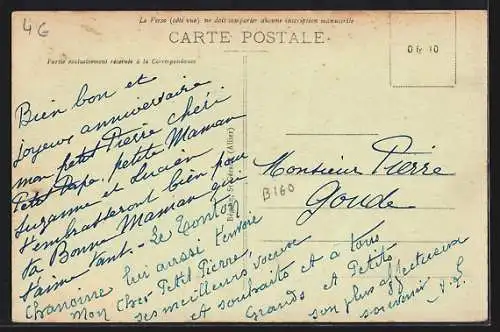 4G
Le Verso (côté vue) ne doit comporter aucune inscription manuscrite
CARTE POSTALE
Partie exclusivement réservée à la Correspondance
0 fr 10
Bien bon et
joyeux anniversaire
mon petit Pierre chéri
Petit Papa, petite Maman
Suzanne et Lucien
t'embrasseront bien pour
ta Bonne Maman qui
t'aime tant. - Le Tonton
Chanoine lui aussi t'envoie
mon cher Petit Pierre,
ses meilleurs voeux
et souhaits et à tous
Grands et Petits
son plus affectueux
souvenir
(Allier)
Monsieur Pierre
Goude
B160